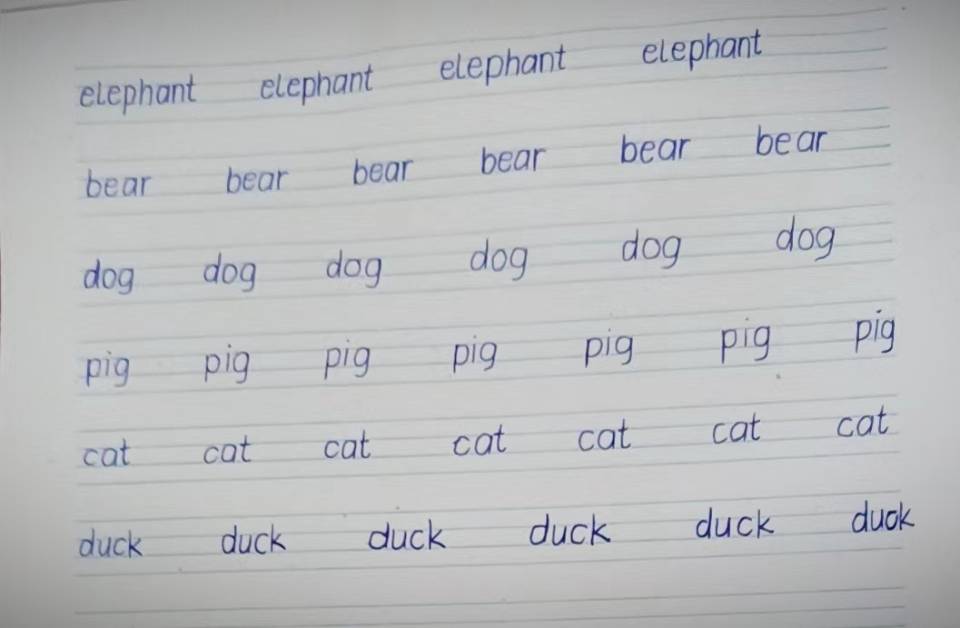 elephant elephant elephant elephant
bear bear bear bear bear bear
dog dog dog dog dog dog
pig pig pig pig pig pig pig
cat cat cat cat cat cat cat
duck duck duck duck duck duok